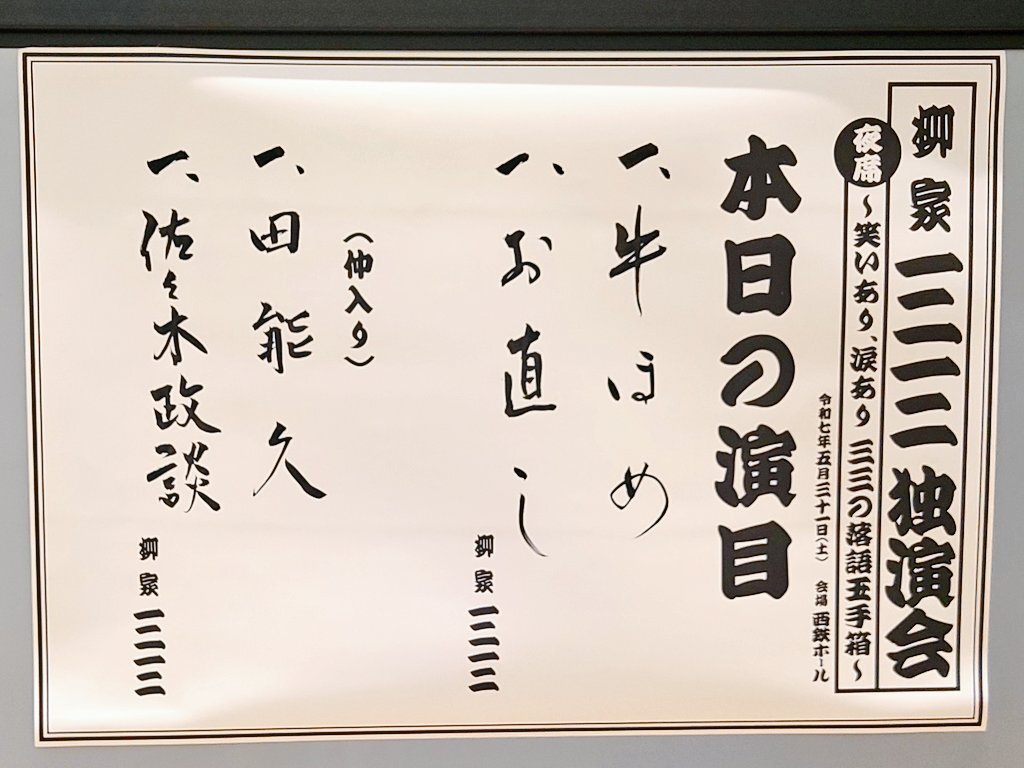 柳家三三独演会
夜席
〜笑いあり、涙あり 三三の落語玉手箱〜
令和七年五月三十一日(土) 会場 西鉄ホール
本日の演目
一、牛ほめ
一、お直し
柳家三三
(仲入り)
一、田能久
一、佐々木政談
柳家三三